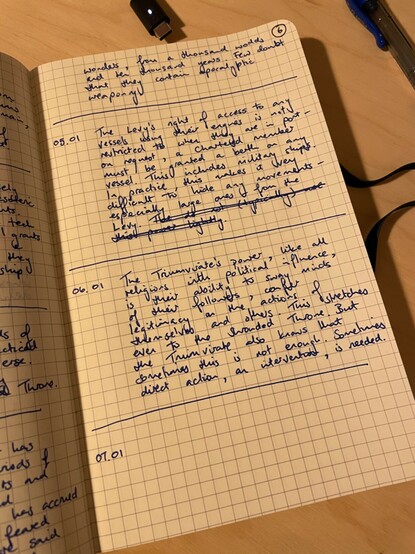 Th
ms
man,
f
ely
esoteric
nts
I feel
grants
f they
ship
ds of
actical
erse.
Throne.
has
riods of
ts and
d
has accrued
feared
re said
6
wonders from a thousand worlds
and ten thousand years. Few doubt
that they contain apocalyptic
weaponry
05.01
The Levy's right of access to any
vessels using their engines is not
restricted to when they are in port -
on request, a chartered member
must be granted a berth on any
vessel. This includes military ships.
In practice, this makes it very
difficult to hide any movements -
especially large ones from the
Levy.
06.01
The Triumvirate's power, like all
religions with political influence,
is their ability to sway minds
of their followers, confer
legitimacy on the actions of
themselves and others. This stretches
even to the Stranded Throne. But
the Triumvirate also knows that
sometimes this is not enough. Sometimes
direct action, an intervention, is needed.
07.01